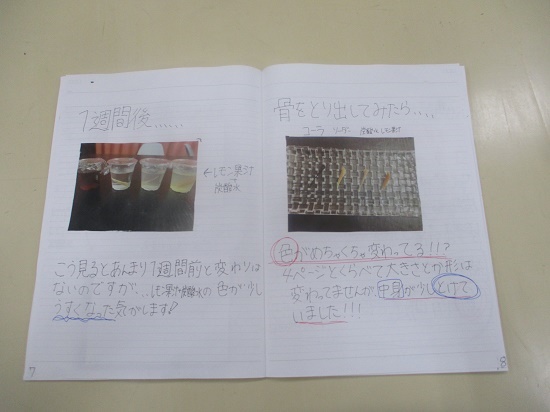 1週間後.....
レモン果汁
炭酸水
こう見るとあんまり1週間前と変わりは
ないのですが、..レモン果汁炭酸水の色が少し
うすくなった気がします?
7
骨をとり出してみたら....
コーラ ソーダー 炭酸水 レモン果汁
色がめちゃくちゃ変わってる!!?
4ページとくらべて大きさとか形は
変わってませんが、中身が少しとけて
いました!!!
8